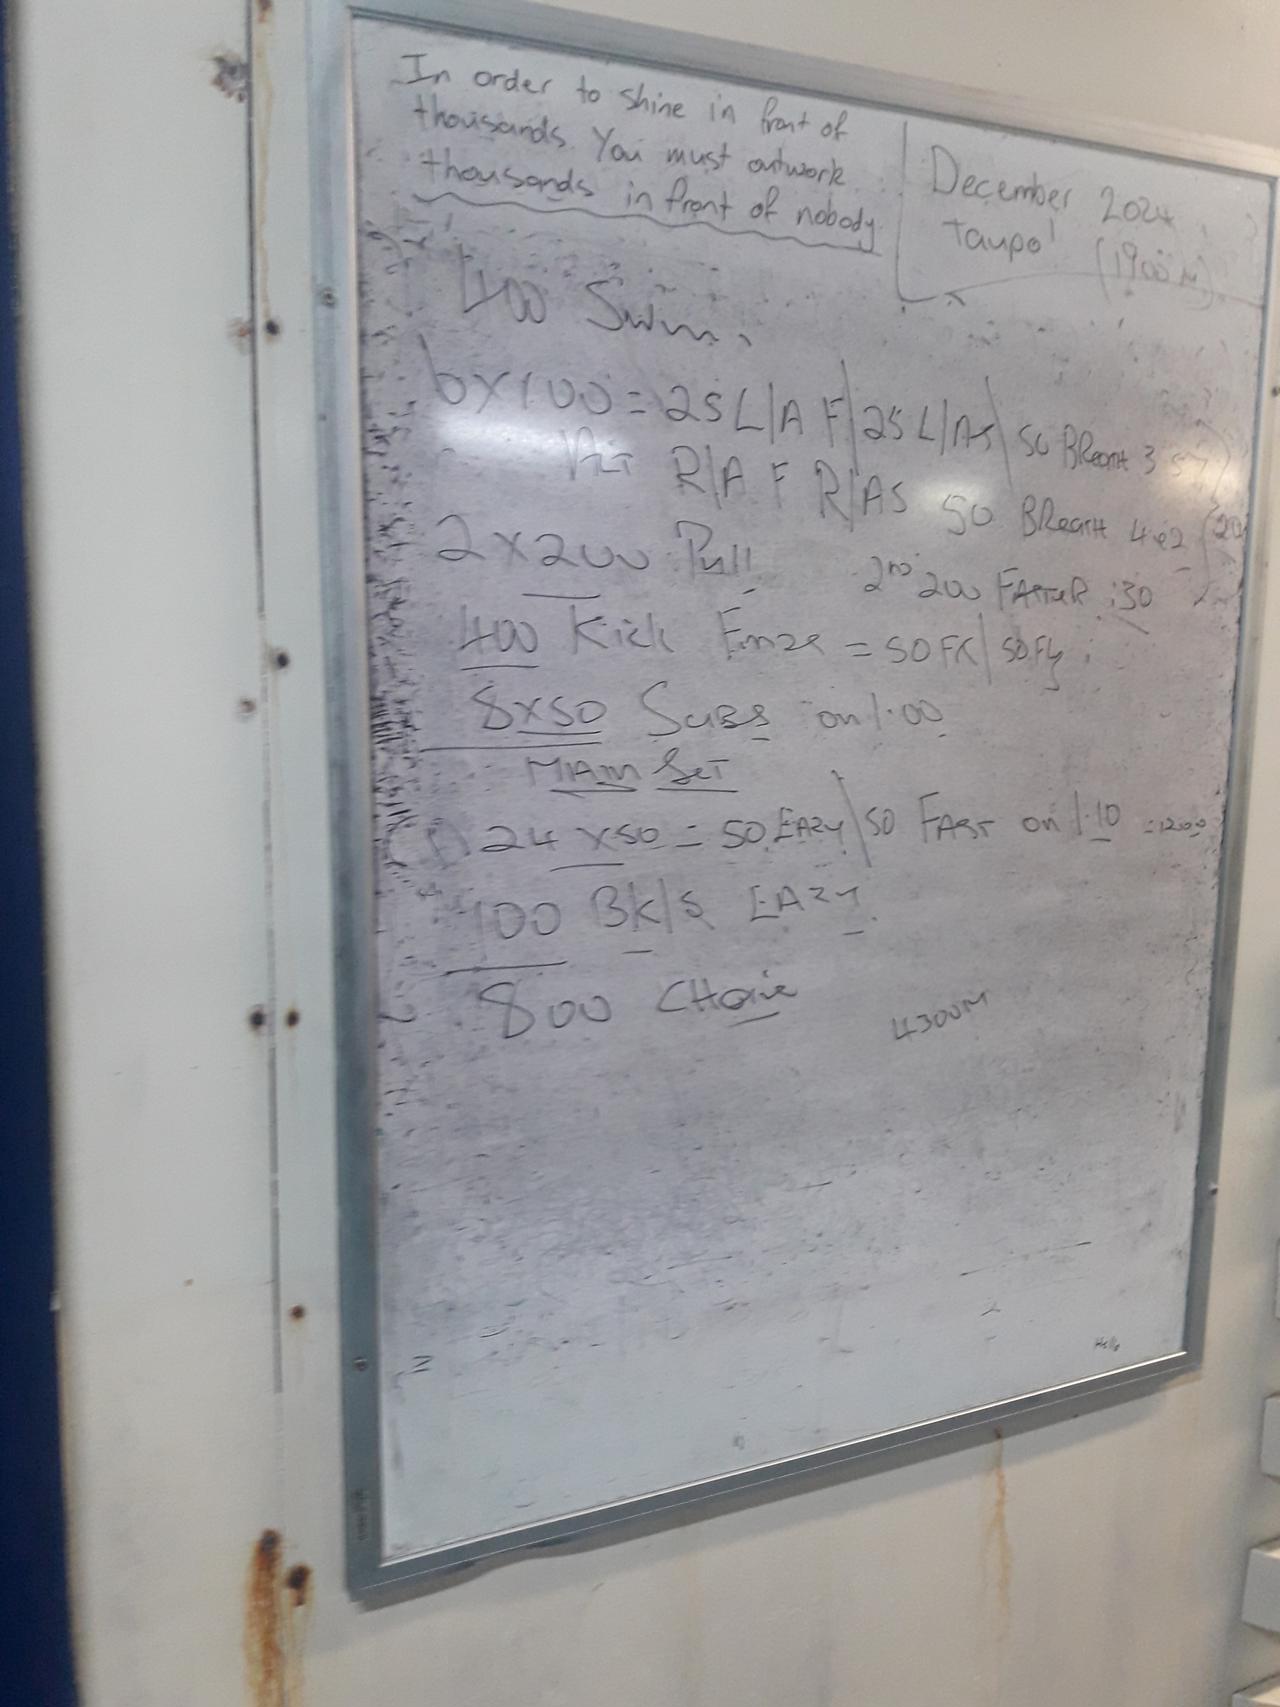 In order to shine in front of
thousands. You must outwork
thousands in front of nobody.
December 2024
Taupo (1900M)
400 Swim.
6x100 = 25 L/A F | 25 L/AS | 50 BReath 3
R/A F R/AS 50 BReath 4 e2
2x200 Pull 2nd 200 FASTER :30
400 Kick = 50 FK | 50 Fly
8x50 SUBS on 1.00
MAIN SET
24 x 50 = 50 EAZY | 50 FAST on 1.10 = 1200
100 BK/S EAZY.
800 CHOice
4300M
Hello